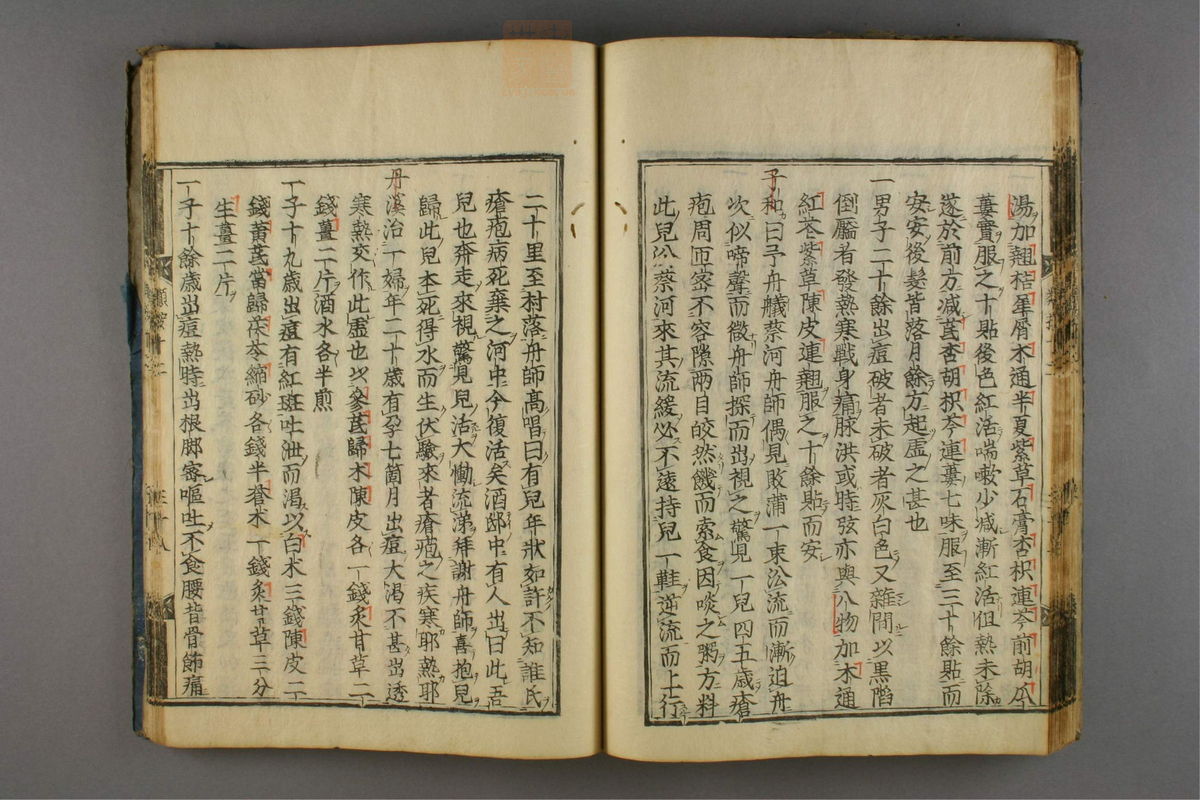 湯加翹桔犀屑木通半夏紫草石膏杏枳連芩前胡瓜
蔞實服之十貼後色紅活喘嗽少减漸紅活但熱未除
遂於前方减芎杏胡枳芩連蔞七味服至三十餘貼而
安安後髮皆落月餘方起虛之甚也
一男子二十餘出痘破者未破者灰白色又雜間以黒陷
倒靨者發熱寒戰身痛脉洪或時弦亦與八物加木通
紅花紫草陳皮連翹服之十餘貼而安
子和曰予舟艤蔡河舟師偶見敗蒲一束沿流而漸迫舟
次似啼聲而微舟師探而出視之驚見一兒四五歳瘡
疱周匝密不容隙兩目皎然饑而索食因啖之粥方料
此兒沿蔡河來其流緩必不遠持兒一鞋逆流而上行
二十里至村落舟師高唱曰有兒年狀如許不知誰氏
瘡疱病死棄之河中今復活矣酒邸中有人出曰此吾
兒也奔走來視驚見兒活大慟流涕拜謝舟師喜抱兒
歸此兒本死得水而生伏驗來者瘡疱之疾寒耶熱耶
丹溪治一婦年二十歳有孕七箇月出痘大渴不甚出透
寒熱交作此虛也以參芪歸术陳皮各一錢炙甘草二
錢薑二片酒水各半煎
一子十九歳出痘有紅斑吐泄而渴以白术三錢陳皮一
錢黄芪當歸茯苓縮砂各錢半蒼术一錢炙甘草三分
生薑二片
一子十餘歳出痘熱時出根脚密嘔吐不食腰背骨節痛